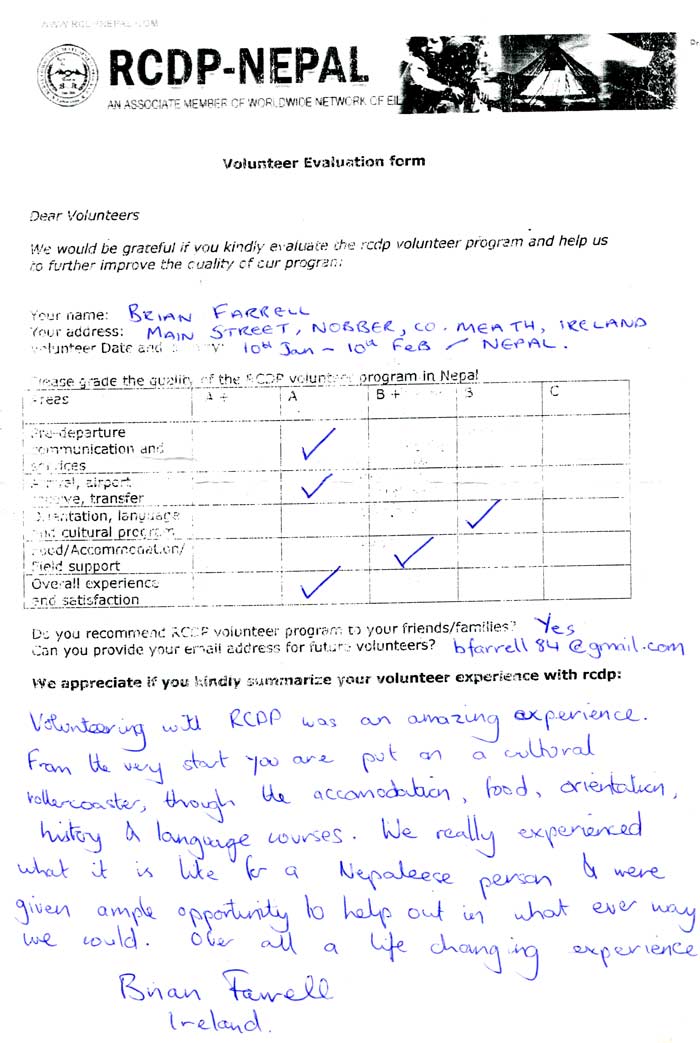 WWW.RCDPNEPAL.COM
RCDP-NEPAL
AN ASSOCIATE MEMBER OF WORLDWIDE NETWORK OF EIL
Volunteer Evaluation form
Dear Volunteers
We would be grateful if you kindly evaluate the rcdp volunteer program and help us
to further improve the quality of our program:
Your name: BRIAN FARRELL
Your address: MAIN STREET, NOBBER, CO. MEATH, IRELAND
Volunteer Date and 10th Jan - 10th Feb / NEPAL.
Please grade the quality of the RCDP volunteer program in Nepal
Areas A+ A B+ B C
Pre-departure
communication and
services
Arrival, airport
receive, transfer
Orientation, language
and cultural program
Food/Accommodation/
Field support
Overall experience
and satisfaction
Do you recommend RCDP volunteer program to your friends/families? Yes
Can you provide your email address for future volunteers? bfarrell84@gmail.com
We appreciate if you kindly summarize your volunteer experience with rcdp:
Volunteering with RCDP was an amazing experience.
From the very start you are put on a cultural
rollercoaster, through the accomodation, food, orientation,
history & language courses. We really experienced
what it is like for a Nepaleese person & were
given ample opportunity to help out in what ever way
we could. Over all a life changing experience
Brian Farrell
Ireland.